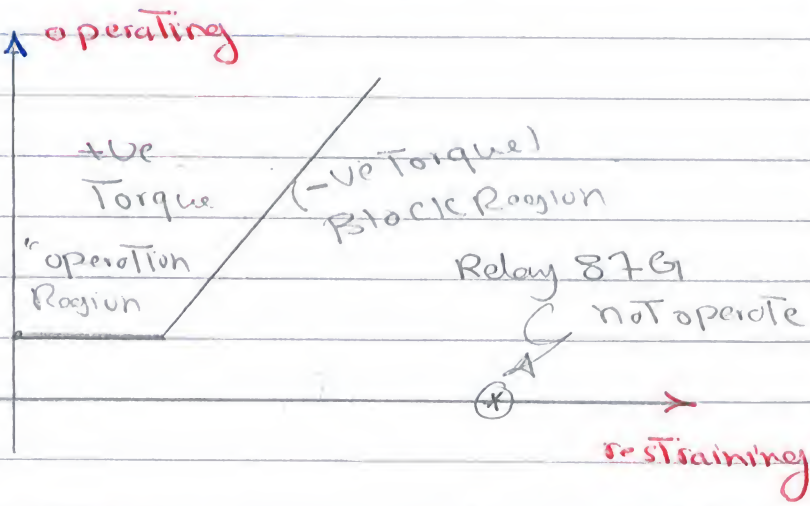 operating
+ve
Torque
"operation
Region
(-ve Torque)
Block Region
Relay 87G
not operate
*
restraining